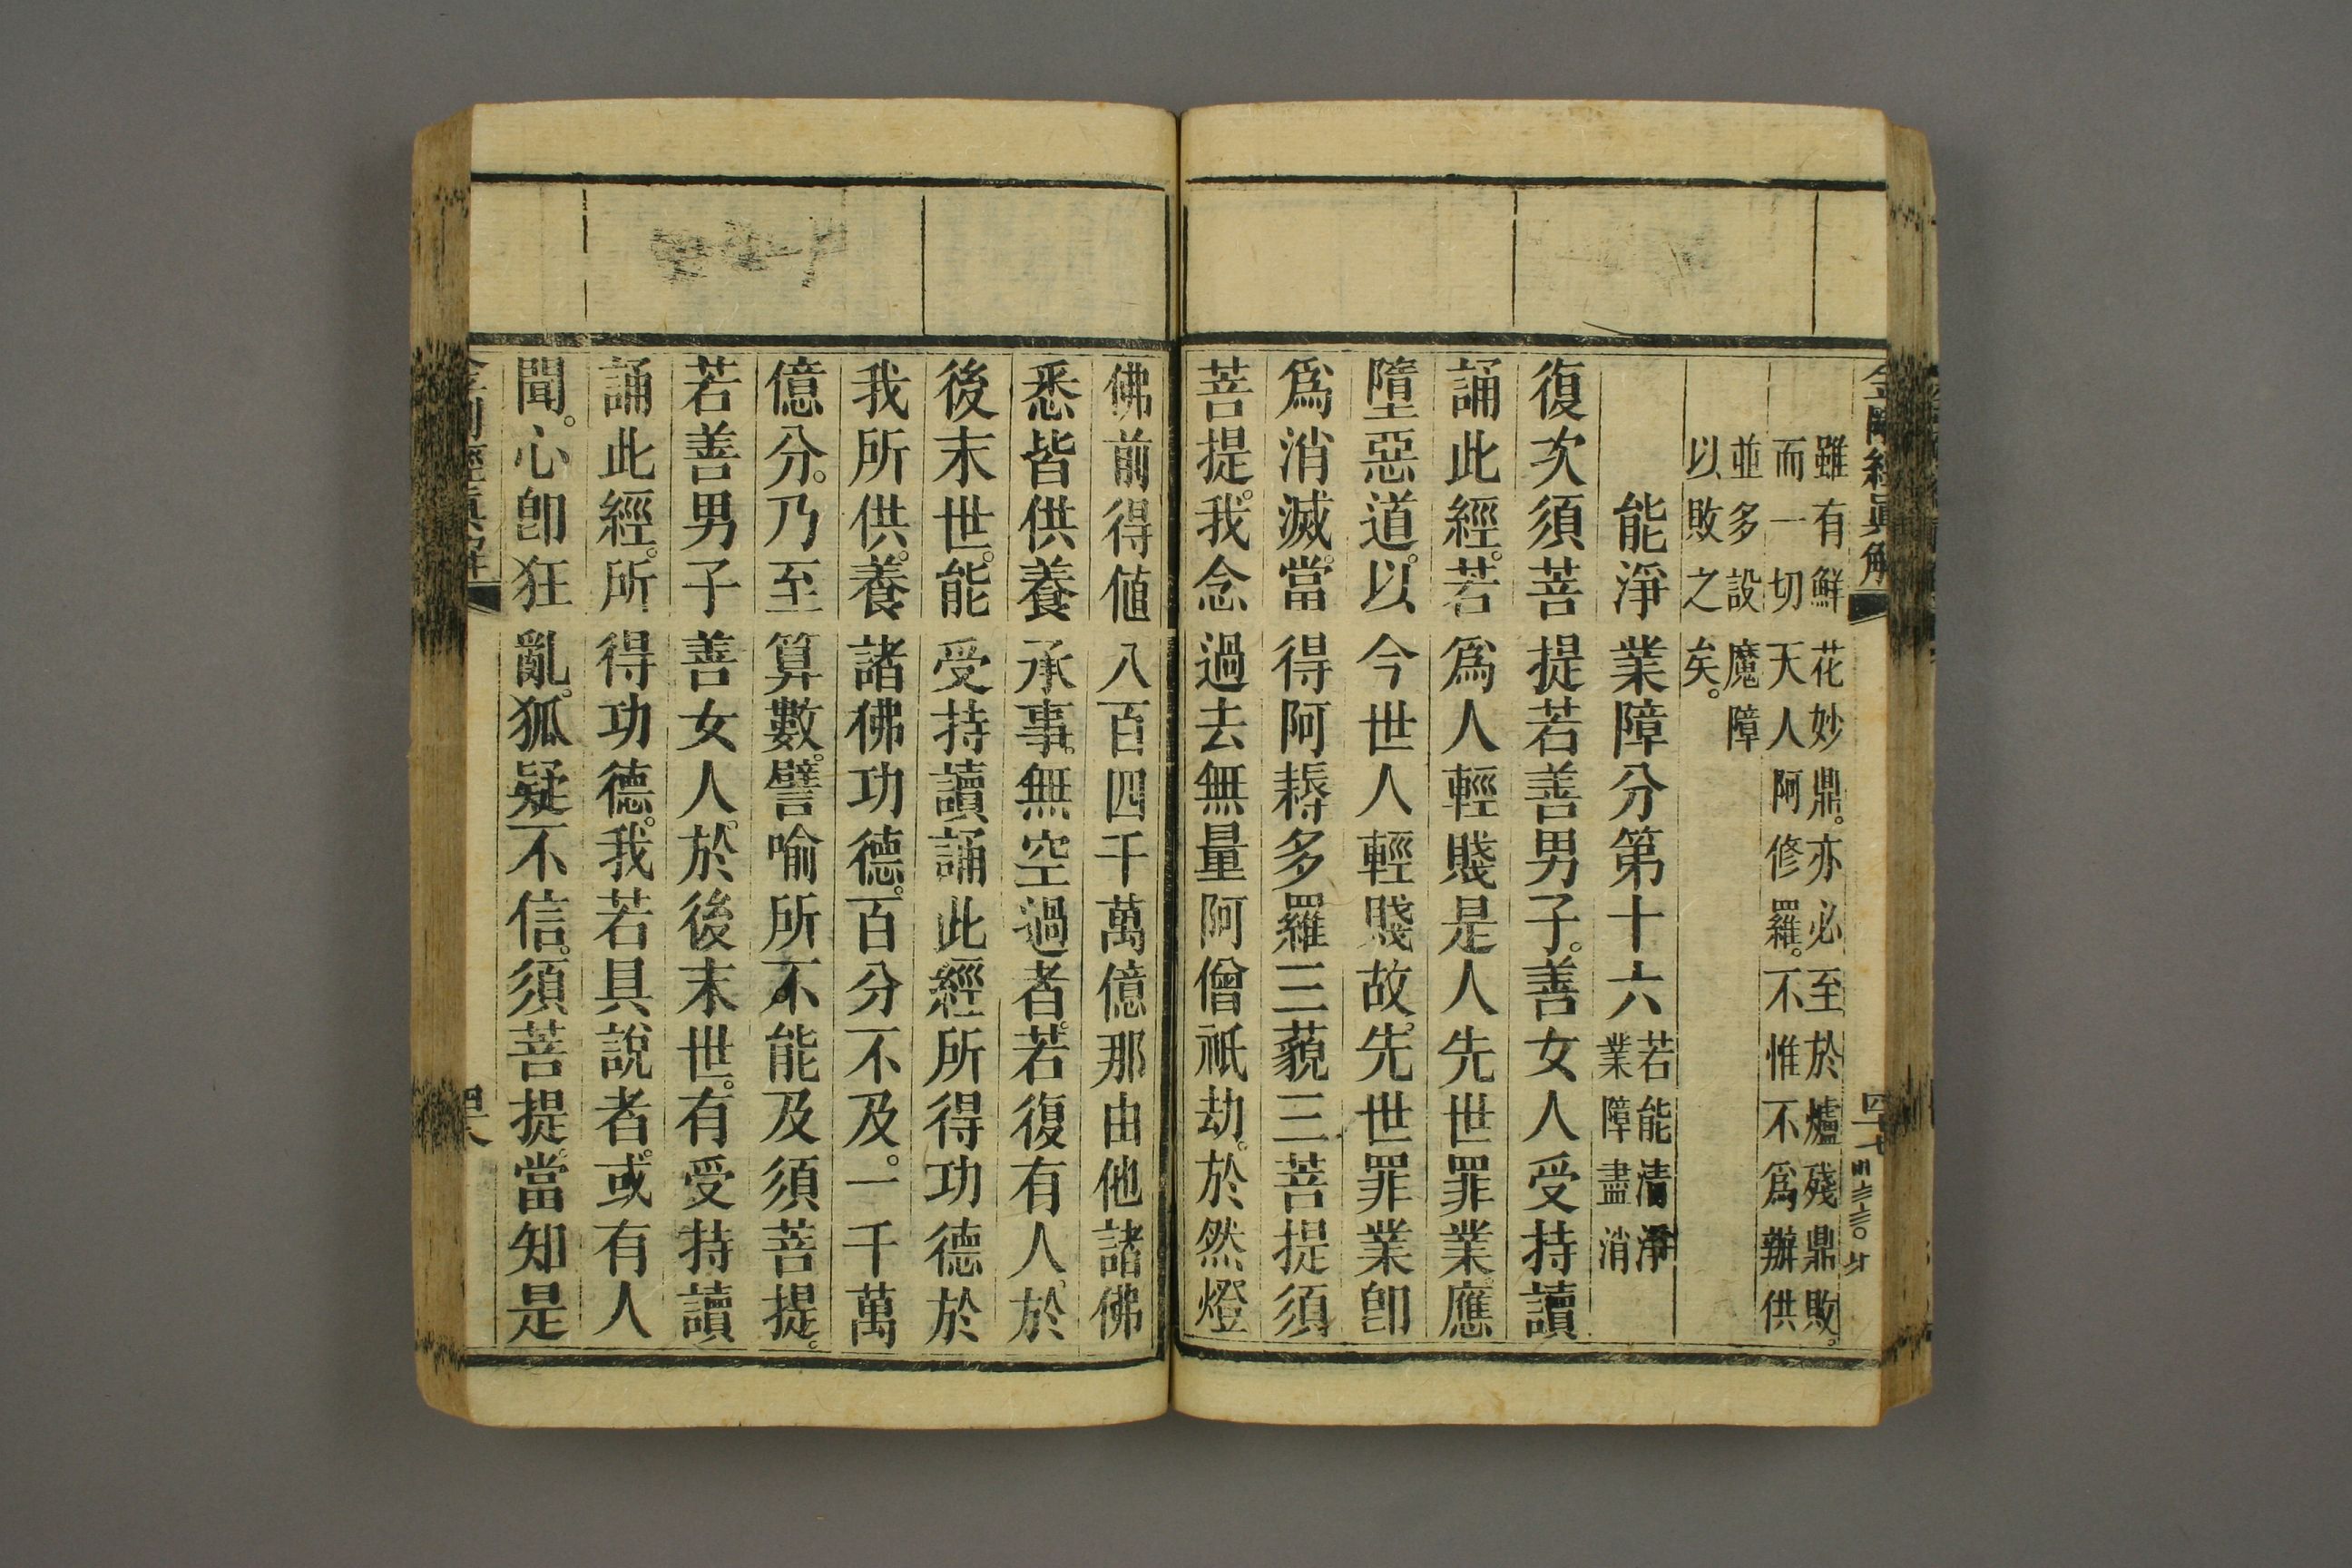 金剛經眞解
四十七
雖有鮮花妙鼎。亦必至於爐殘鼎敗。
而一切天人阿修羅。不惟不爲辦供
並多設魔障
以敗之矣。
能淨業障分第十六
若能清淨
業障盡消
復次須菩提若善男子。善女人受持讀
誦此經。若爲人輕賤是人先世罪業應
墮惡道。以今世人輕賤故。先世罪業卽
爲消滅。當得阿耨多羅三藐三菩提須
菩提。我念過去無量阿僧祇劫。於然燈
佛前得値八百四千萬億那由他諸佛
悉皆供養承事。無空過者。若復有人。於
後末世。能受持讀誦此經所得功德於
我所供。養諸佛功德。百分不及。一千萬
億分。乃至算數。譬喻所不能及須菩提。
若善男子善女人。於後末世。有受持讀
誦此經。所得功德。我若具說者。或有人
聞。心卽狂亂。狐疑不信。須菩提。當知是